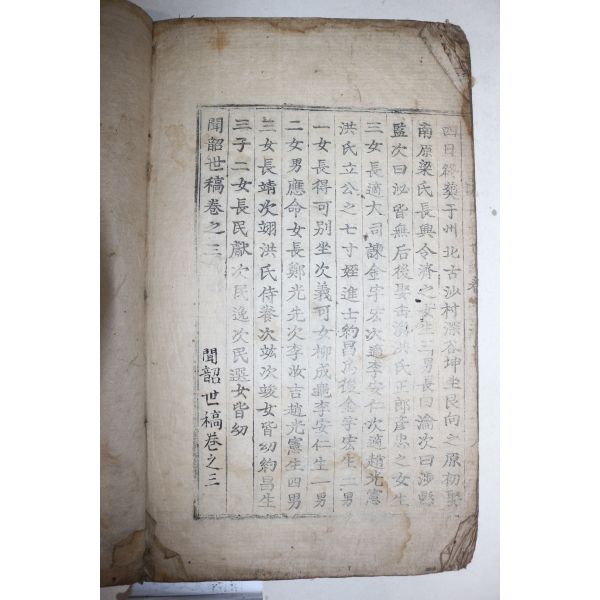 四日緣葬于州北古沙村深谷坤坐艮向之原初娶
南原梁氏長興令濟之女生三男長曰瀹次曰涉縣
監次曰泌皆無后後娶缶溪洪氏正郎彦忠之女生
三女長適大司諫金宇宏次適李安仁次適趙光憲
洪氏立公之七寸姪進士約昌爲後金宇宏生二男
一女長得可別坐次義可女柳成龜李安仁生一男
二女男應命女長鄭光先次李妝吉趙光憲生四男
三女長靖次翊洪氏侍養次竑次竣女皆幼約昌生
三子二女長民獻次民逸次民選女皆幼
聞韶世稿卷之三
聞韶世稿卷之三